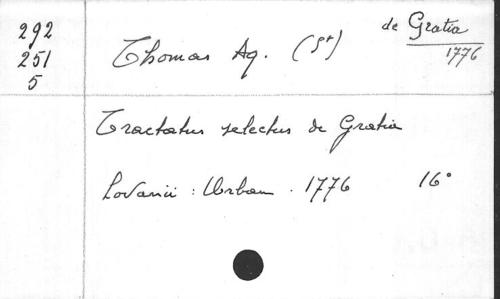 292
251
5
Thomas Aq. (St)
de Gratia
1776
Tractatus selectus de Gratia
Lovanii : Urban . 1776 16°